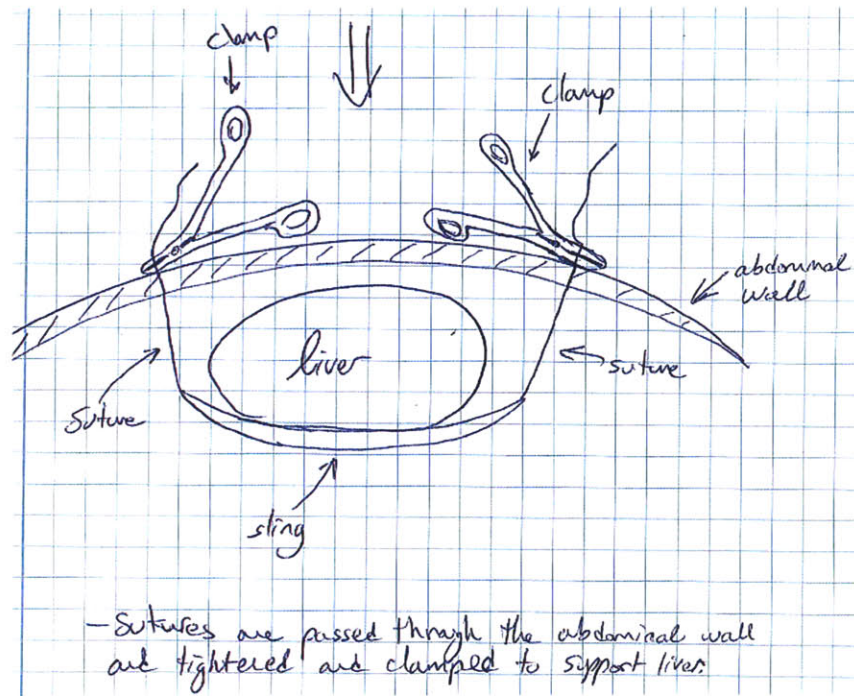 clamp
clamp
abdominal
wall
liver
suture
suture
sling
- Sutures are passed through the abdominal wall
and tightened and clamped to support liver.